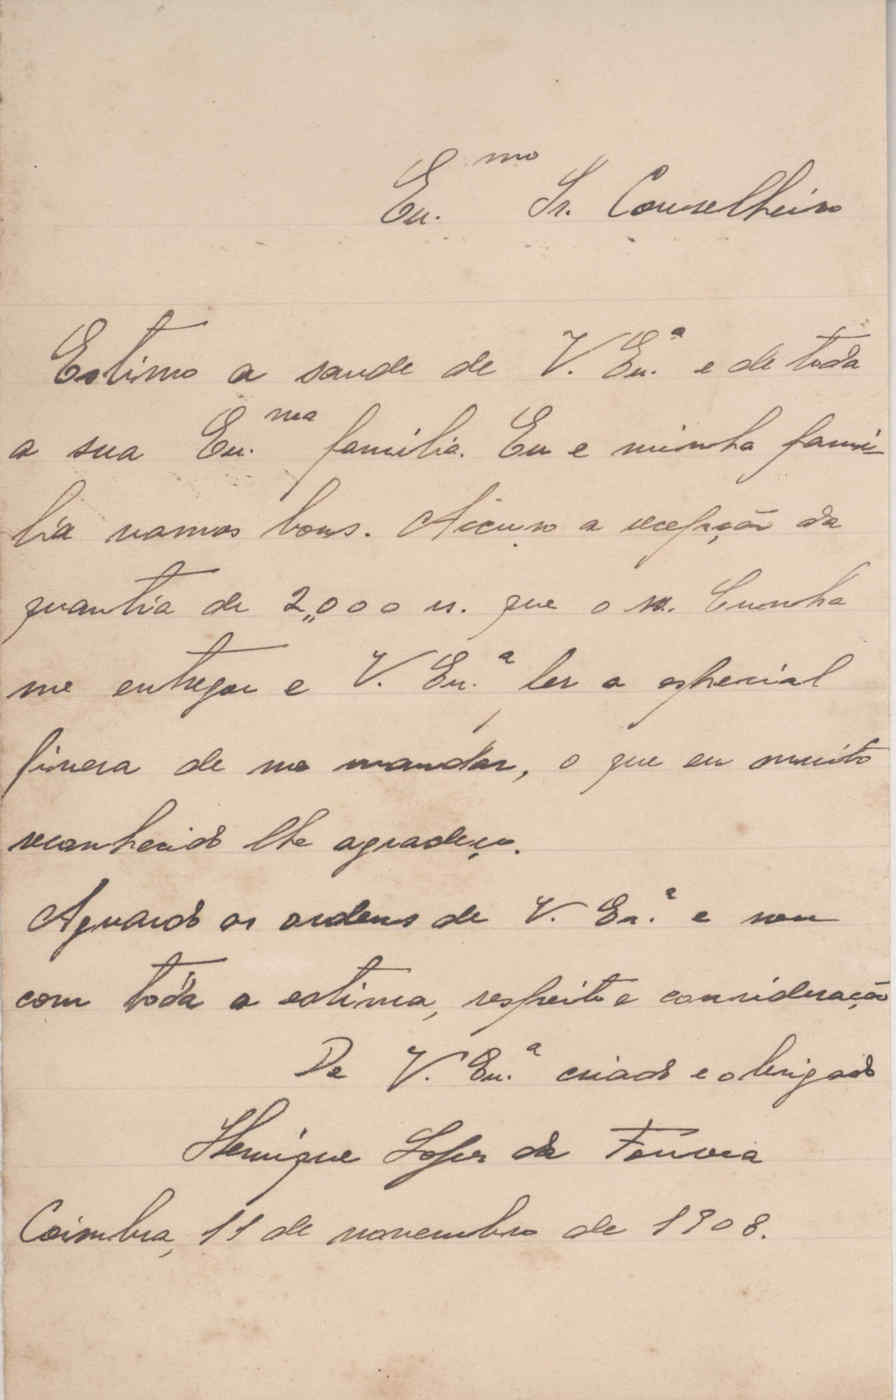 Ex.mo Sr. Conselheiro
Estimo a saude de V. Ex.a e de toda
a sua Ex.ma familia. Eu e minha fami-
lia vamos bons. Accuso a recepção da
quantia de 2,,000 rs. que o sr. Cunha
me entregou e V. Ex.a, ter a especial
fineza de me mandar, o que eu muito
reconhecido lhe agradeço.
Aguardo as ordens de V. Ex.a e sou
com toda a estima, respeito e consideração
De V. Ex.a criado e obrigado
Henrique Lopes da Fonseca
Coimbra, 11 de novembro de 1908.